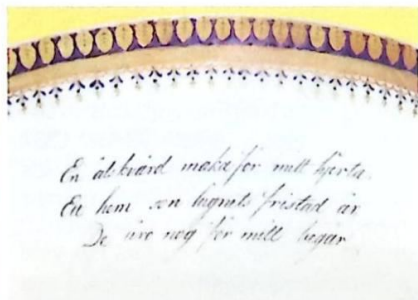 En älskvärd maka för mitt hjerta.
Ett hem som lugnets fristad är
De äro nog för mitt begär